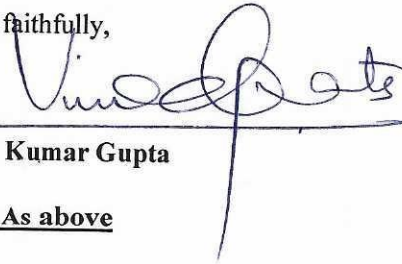 faithfully,
Kumar Gupta
As above